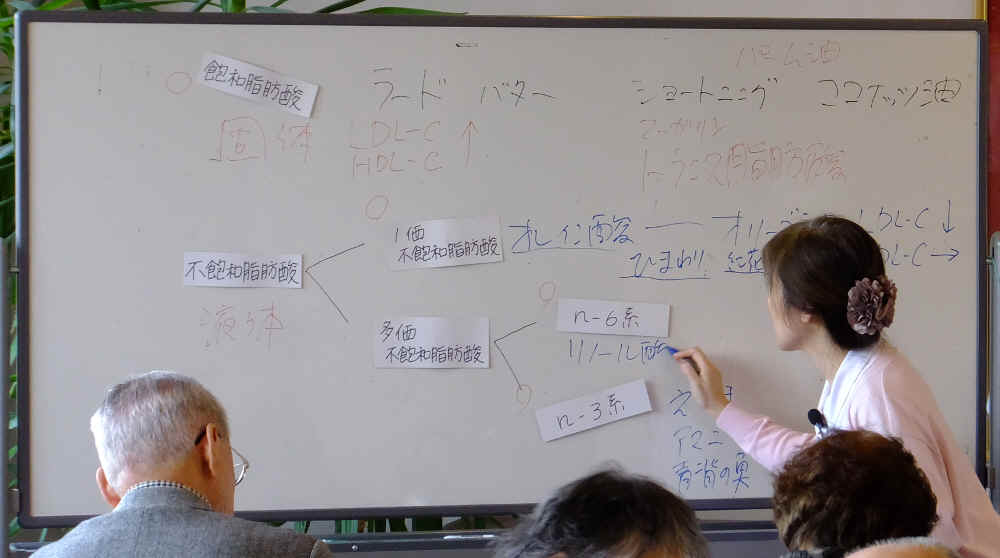 パーム油
飽和脂肪酸 ラード バター ショートニング ココナッツ油
固体 LDL-C ↑ マーガリン
HDL-C トランス脂肪酸
1価
不飽和脂肪酸 オレイン酸 — オリーブ LDL-C ↓
ひまわり 紅花 DL-C →
不飽和脂肪酸
液体
n-6系
多価
不飽和脂肪酸
リノール酸
n-3系
アマニ
青背の魚